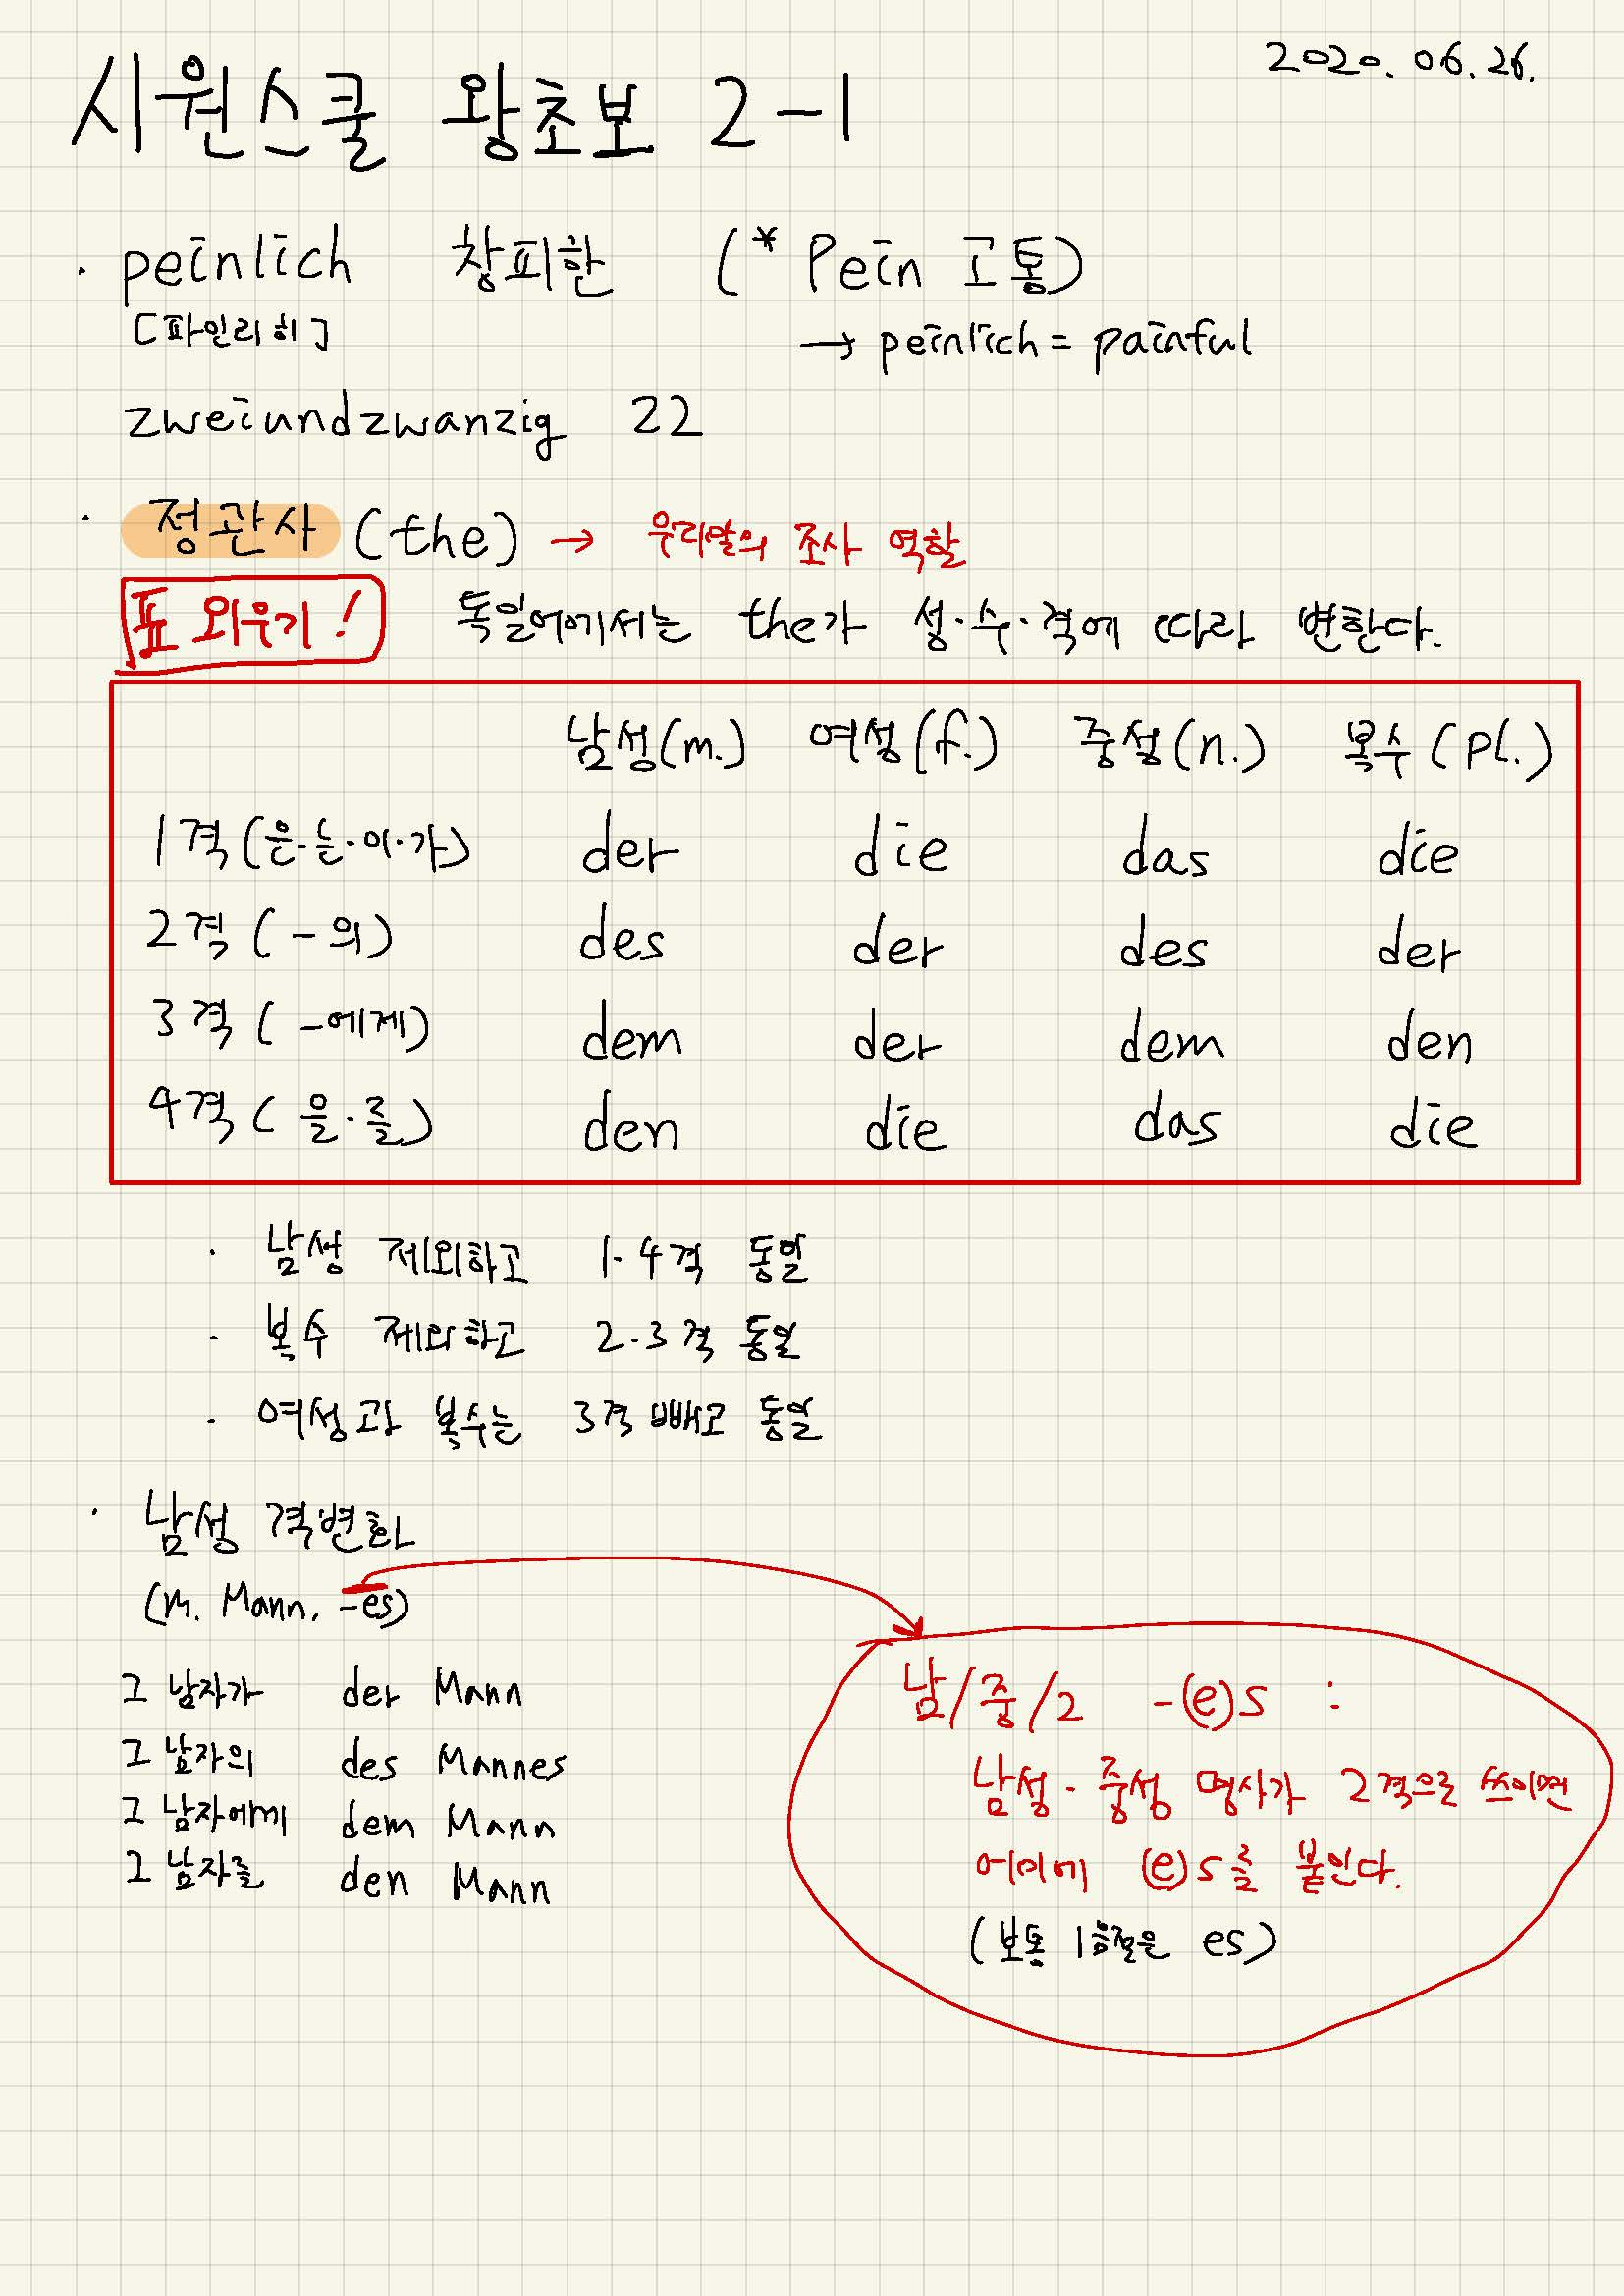 2020. 06. 26.
시원스쿨 왕초보 2-1
· peinlich 창피한 (* Pein 고통)
[파인리히] → peinlich = painful
zweiundzwanzig 22
· 정관사 (the) → 우리말의 조사 역할
표 외우기! 독일어에서는 the가 성·수·격에 따라 변한다.
남성(m.) 여성(f.) 중성(n.) 복수(pl.)
1격(은·는·이·가) der die das die
2격(-의) des der des der
3격(-에게) dem der dem den
4격(을·를) den die das die
· 남성 제외하고 1·4격 동일
· 복수 제외하고 2·3격 동일
· 여성과 복수는 3격 빼고 동일
· 남성 격변화
(m. Mann, -es)
그 남자가 der Mann
그 남자의 des Mannes
그 남자에게 dem Mann
그 남자를 den Mann
남/중/2 -(e)s :
남성·중성 명사가 2격으로 쓰이면
어미에 (e)s를 붙인다.
(보통 1음절은 es)